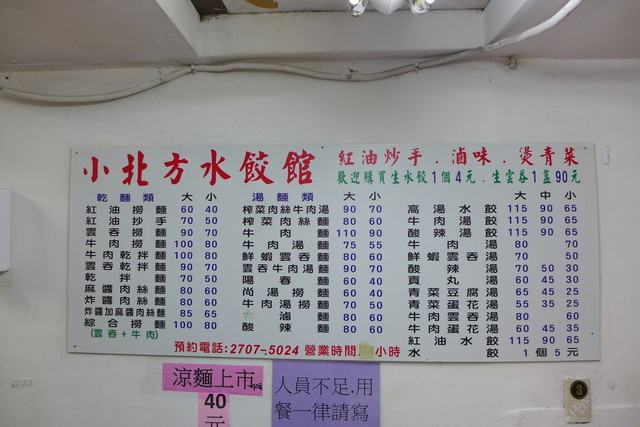 小北方水餃館
紅油炒手．滷味．燙青菜
歡迎購買生水餃1個4元．生雲吞1盒90元
乾麵類 大 小
紅油撈麵 60 40
紅油抄手 70 50
雲吞撈麵 90 70
牛肉撈麵 100 80
牛肉乾拌麵 100 80
雲吞乾拌麵 90 70
乾拌麵 70 50
麻醬肉絲麵 80 60
炸醬肉絲麵 80 60
炸醬加麻醬肉絲麵 85 65
綜合撈麵 100 80
(雲吞+牛肉)
湯麵類 大 小
榨菜肉絲牛肉湯 90 70
榨菜肉絲麵 80 60
牛肉麵 110 90
牛肉湯麵 75 55
鮮蝦雲吞麵 80 60
雲吞牛肉湯麵 90 70
陽春麵 60 40
尚湯撈麵 60 40
牛肉湯撈麵 70 50
滷麵 80 60
酸辣麵 80 60
大 中 小
高湯水餃 115 90 65
牛肉湯餃 115 90 65
酸辣湯餃 115 90 65
牛肉湯 80 70
鮮蝦雲吞湯 70 50
酸辣湯 70 50 30
貢丸湯 60 45 30
青菜豆腐湯 65 45 25
青菜蛋花湯 55 35 25
牛肉雲吞湯 80 60
牛肉蛋花湯 60 45 35
紅油水餃 115 90 65
水餃 1個5元
預約電話:2707-5024 營業時間 小時
涼麵上市
40
元
人員不足,用
餐一律請寫
3